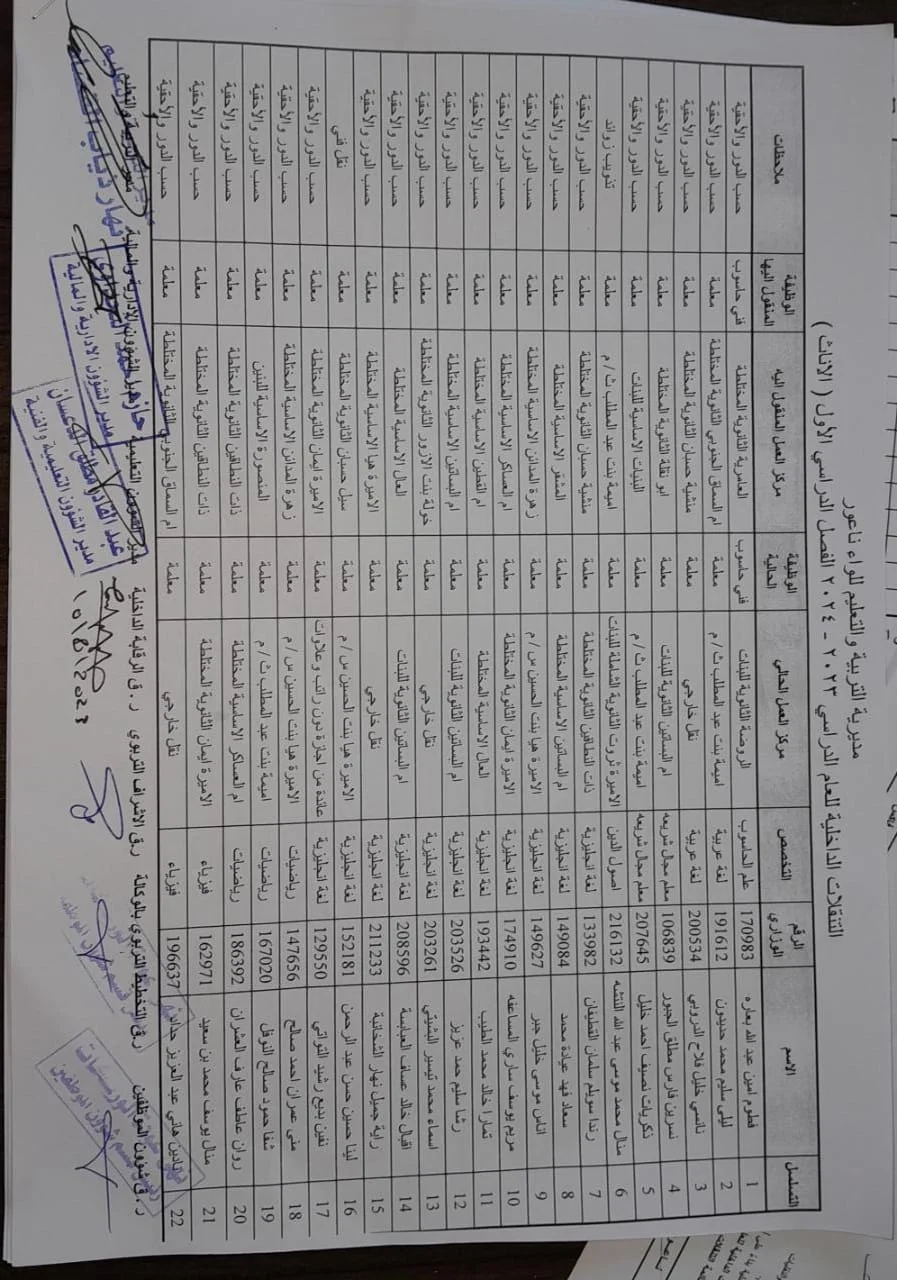 مديرية التربية والتعليم للواء ناعور
التنقلات الداخلية للعام الدراسي ٢٠٢٣ - ٢٠٢٤ الفصل الدراسي الأول ( الاناث )
التسلسل الاسم الرقم الوزاري التخصص مركز العمل الحالي الوظيفة الحالية مركز العمل المنقول اليه الوظيفة المنقول اليها ملاحظات
1 فطوم امين عبد الله بعاره 170983 علم الحاسوب الروضة الثانوية للبنات فني حاسوب العامرية الثانوية المختلطة فني حاسوب حسب الدور والأحقية
2 ليلى سليم محمد حديدون 191612 لغة عربية اميمة بنت عبد المطلب ث/م معلمة ام السماق الجنوبي الثانوية المختلطة معلمة حسب الدور والأحقية
3 نانسي خليل فلاح الدروبي 200534 لغة عربية نقل خارجي معلمة منشية حسبان الثانوية المختلطة معلمة حسب الدور والأحقية
4 نسرين فارس مطلق الجبور 106839 معلم مجال شريعه ام البساتين الثانوية للبنات معلمة ابو نقلة الثانوية المختلطة معلمة حسب الدور والأحقية
5 ذكريات نصيف احمد خليل 207645 معلم مجال شريعه اميمة بنت عبد المطلب ث/م معلمة البنيات الاساسية للبنات معلمة حسب الدور والأحقية
6 منال محمد موسى عبد الله النتشه 216132 اصول الدين الاميرة ثروت الثانوية الشاملة للبنات معلمة اميمة بنت عبد المطلب ث/م معلمة تذويب زوائد
7 رندا سويلم سلمان القطيفان 133982 لغة انجليزية ذات النطاقين الثانوية المختلطة معلمة منشية حسبان الثانوية المختلطة معلمة حسب الدور والأحقية
8 سعاد فهد عيادة محمد 149084 لغة انجليزية ام البساتين الاساسية المختلطة معلمة المشقر الاساسية المختلطة معلمة حسب الدور والأحقية
9 ايناس موسى خليل جبر 149627 لغة انجليزية الاميرة هيا بنت الحسين س/م معلمة زهرة المدائن الاساسية المختلطة معلمة حسب الدور والأحقية
10 مريم يوسف ساري المساعفه 174910 لغة انجليزية الاميرة ايمان الثانوية المختلطة معلمة ام العساكر الاساسية المختلطة معلمة حسب الدور والأحقية
11 تمارا خالد محمد الطيب 193442 لغة انجليزية العال الاساسية المختلطة معلمة ام القطين الاساسية المختلطة معلمة حسب الدور والأحقية
12 رشا سليم حمد عزيز 203526 لغة انجليزية ام البساتين الثانوية للبنات معلمة ام البساتين الاساسية المختلطة معلمة حسب الدور والأحقية
13 اسماء محمد تيسير البشيتي 203261 لغة انجليزية نقل خارجي معلمة خولة بنت الازور الثانوية المختلطة معلمة حسب الدور والأحقية
14 اقبال خالد عساف العبابسة 208596 لغة انجليزية ام البساتين الثانوية للبنات معلمة العال الاساسية المختلطة معلمة حسب الدور والأحقية
15 راية جميل نهار الشخانبة 211233 لغة انجليزية نقل خارجي معلمة الاميرة هيا الاساسية المختلطة معلمة حسب الدور والأحقية
16 لينا حسين حسن عبد الرحمن 152181 لغة انجليزية الاميرة هيا بنت الحسين س/م معلمة سيل حسبان الثانوية المختلطة معلمة نقل فني
17 نفين بديع رشيد التواتي 129550 لغة انجليزية عائدة من اجازة دون راتب علاوات معلمة الاميرة ايمان الثانوية المختلطة معلمة حسب الدور والأحقية
18 منى عمران احمد صالح 147656 رياضيات الاميرة هيا بنت الحسين س/م معلمة زهرة المدائن الاساسية المختلطة معلمة حسب الدور والأحقية
19 شفا حمود صالح النوفل 167020 رياضيات اميمة بنت عبد المطلب ث/م معلمة المنصورة الاساسية للبنين معلمة حسب الدور والأحقية
20 روان عاطف عارف العشران 186392 رياضيات ام العساكر الاساسية المختلطة معلمة ذات النطاقين الثانوية المختلطة معلمة حسب الدور والأحقية
21 منال يوسف محمد بن سعيد 162971 فيزياء الاميرة ايمان الثانوية المختلطة معلمة ذات النطاقين الثانوية المختلطة معلمة حسب الدور والأحقية
22 نادين هاني عبد العزيز حداد 196637 فيزياء نقل خارجي معلمة ام السماق الجنوبي الثانوية المختلطة معلمة حسب الدور والأحقية
ر.ق شؤون الموظفين ر.ق التخطيط التربوي بالوكالة ر.ق الاشراف التربوي ر.ق الرقابة الداخلية مدير الشؤون التعليمية مدير الشؤون الادارية والمالية مدير التربية والتعليم
مدير الشؤون الادارية والمالية
مدير الشؤون التعليمية والفنية
15/8/2023